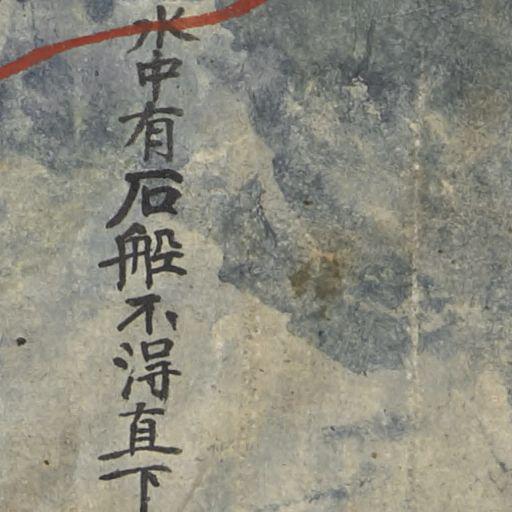 水中有石船不淂直下